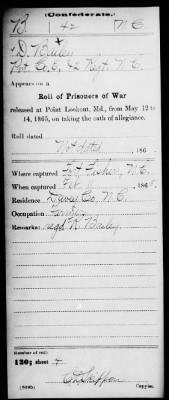 (Confederate.)
B | 42 | N C
D. Bailey
Pvt. Co. E, 42 Regt. N. C.
Appears on a
Roll of Prisoners of War
released at Point Lookout, Md., from May 12 to
14, 1865, on taking the oath of allegiance.
Roll dated
Not dated, 186
Where captured Fort Fisher, N. C.
When captured Feb. 11, 1865.
Residence Davie Co. N. C.
Occupation Farmer
Remarks: Negd R. Bailey
Number of roll:
120; sheet 4
(639b) Copyist.